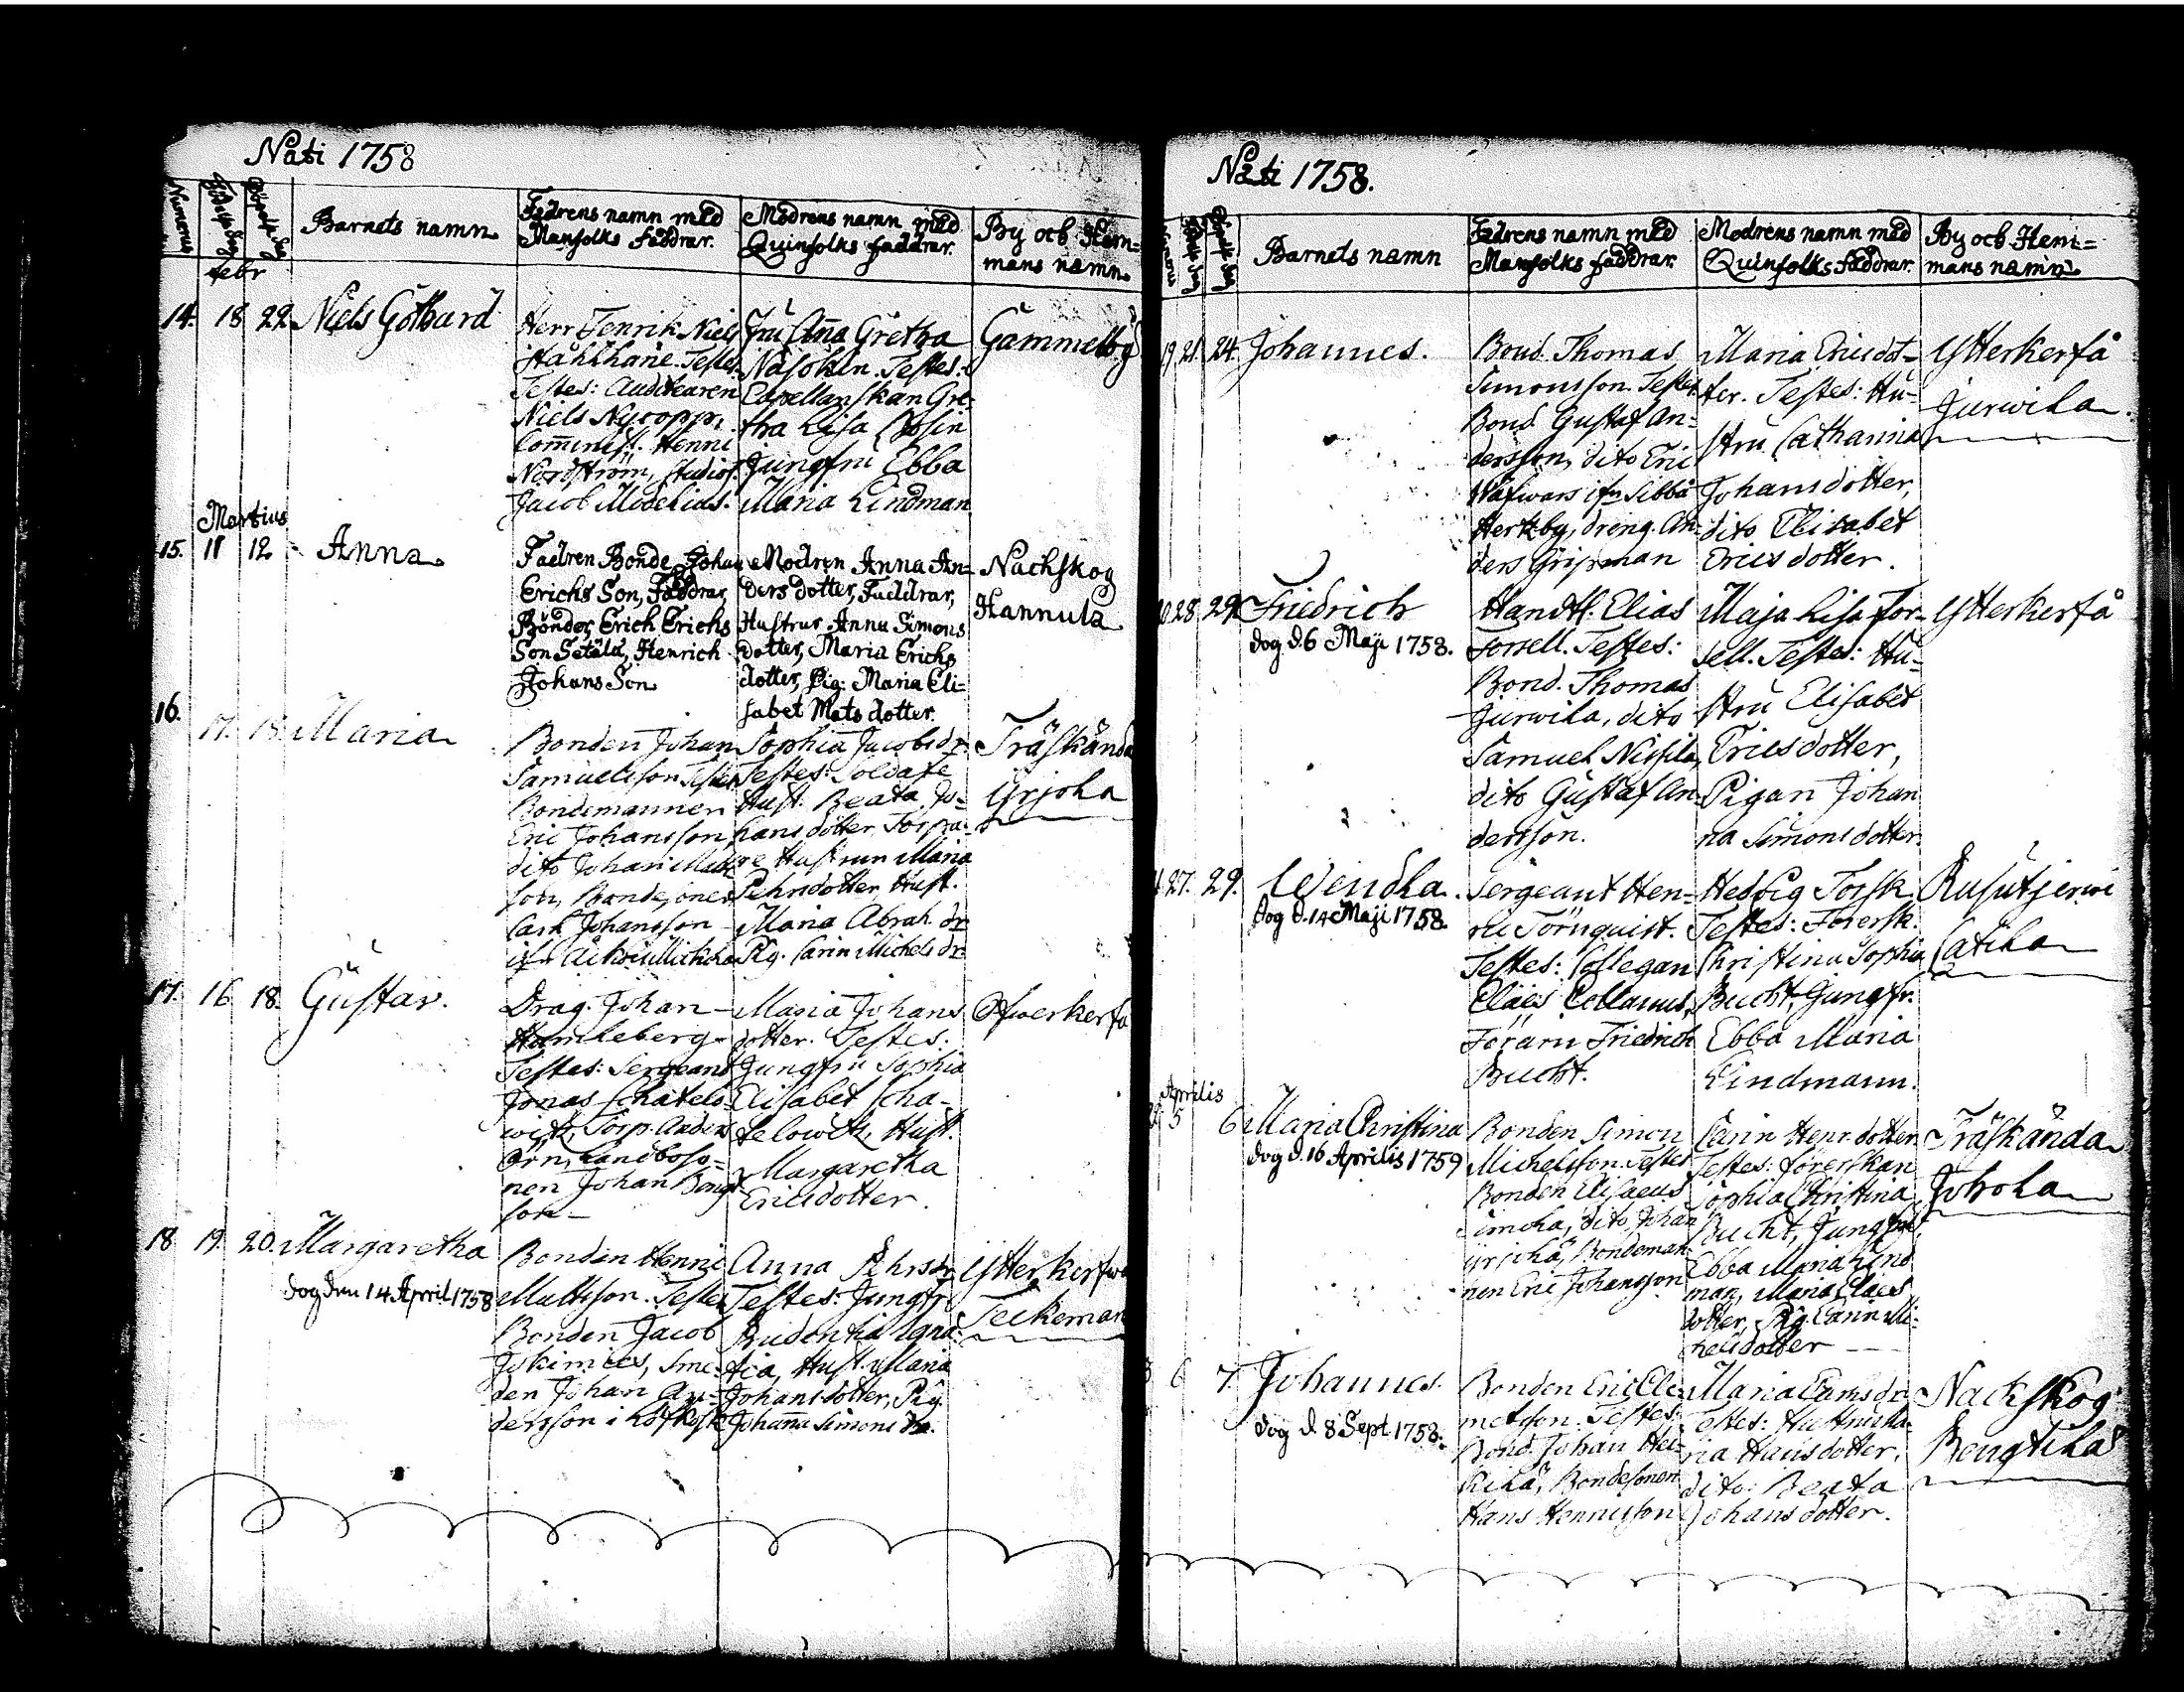 Nati 1758
Numerus
Födelse dag
Döpelse dag
Barnets namn
Fadrens namn med
Mansfolks faddrar.
Modrens namn med
Quinfolks faddrar.
By och Hem=
mans namn
febr
14. 18 22 Niels Gothard
Herr Henrik Niels
Testes: Auditeuren
Niels
Nordström, Studios.
Jacob Modelius.
Fru Anna Gretha
Testes:
Capellanskan Gre-
tha Lisa
Jungfru Ebba
Maria Lindman
Gammelby
Martius
15. 11 12 Anna
Fadren Bonde Johan
Erichs Son, Faddrar,
Bönder, Erich Erichs
Son Setälä, Henrich
Johans Son
Modren Anna An=
ders dotter, Faddrar,
Hustrur Anna Simons
dotter, Maria Erichs
dotter, Pig: Maria Eli=
sabet Mats dotter.
Nachskog
Hannula
16. 17. 18. Maria
Bonden Johan
Samuelsson Testes
Bondemannen
Eric Johansson
dito Johan Matts
son, Bondesonen
Carl Johansson
Sophia Jacobs dr
Testes: Soldate
Hust. Beata Jo=
hans dotter, Torpa=
re Hustrun Maria
Pehrsdotter Hust.
Maria Abrah. dr
Pig. Carin Michels dr
Träskända
Yrjola
17. 16 18. Gustav.
Drag. Johan
Hamleberg
Testes: Sergeant
Jonas Schatelo-
witz, Torp. Anders
Örn, Landboso=
nen Johan Bengt
son
Maria Johans
dotter. Testes.
Jungfru Sophia
Elisabet Scha-
telowitz, Hust.
Margaretha
Ericsdotter.
Ofwerkerfa
18 19. 20. Margaretha
dog den 14 April 1758
Bonden Henric
Mattsson. Testes
Bonden Jacob
Jskimies, Sme-
den Johan An-
dersson i
Anna Pehrsdr
Testes: Jungfr
Prudentia Igna-
tia, Hust. Maria
Johansdotter, Pig.
Johanna Simons dr.
Ytterkerfwo
Teckeman
Nati 1758.
Barnets namn
Fadrens namn med
Mansfolks faddrar.
Modrens namn med
Quinfolks faddrar.
By och Hem=
mans namn
19. 21. 24. Johannes.
Bond. Thomas
Simonsson. Testes
Bond. Gustaf An=
dersson, dito Eric
ifr Sibbå
Hertzby, dreng. An-
ders Gripman
Maria Ericsdot-
ter. Testes: Hu-
stru Catharina
Johansdotter,
dito Elisabet
Ericsdotter.
Ytterkerfå
Jurwila.
20 28 29 Friedrich
dog d. 6 Maji 1758.
Handtl. Elias
Forsell. Testes:
Bond. Thomas
Jurwila, dito
Samuel Nissila,
dito Gustaf An-
dersson.
Maja Lisa For-
sell. Testes: Hu-
stru Elisabet
Ericsdotter,
Pigan Johan
na Simonsdotter.
Ytterkerfå
27. 29. Wendla.
dog d. 14 Maji 1758.
Sergeant Hen-
ric Törnquist.
Testes: Collegan
Claes Collanus,
Friedrich
Bucht.
Hedvig Forsk
Testes: Forersk.
Christina Sophia
Bucht, Jungfr.
Ebba Maria
Lindmann.
Rusutjerwi
Catila
Aprilis
22 5 6 Maria Christina
dog d. 16 Aprilis 1759
Bonden Simon
Michelsson. Testes
Bonden Elisaeus
Simola, dito, Johan
Yrjola, Bondeman
nen Eric Johansson
Carin Henr. dotter
Testes: förerskan
Sophia Christina
Bucht, Jungfr.
Ebba Maria Lind
man, Maria Claes
dotter, Pig. Carin Mi-
chelsdotter
Träskända
Johola
6 7. Johannes.
dog d 8 Sept 1758.
Bonden Eric Cle-
metsson. Testes:
Bond. Johan Hei-
kilä, Bondesonen
Hans Henricsson
Maria
Testes: Hustru Ma-
ria Hansdotter,
dito: Beata
Johansdotter.
Nackskog
Bengtila